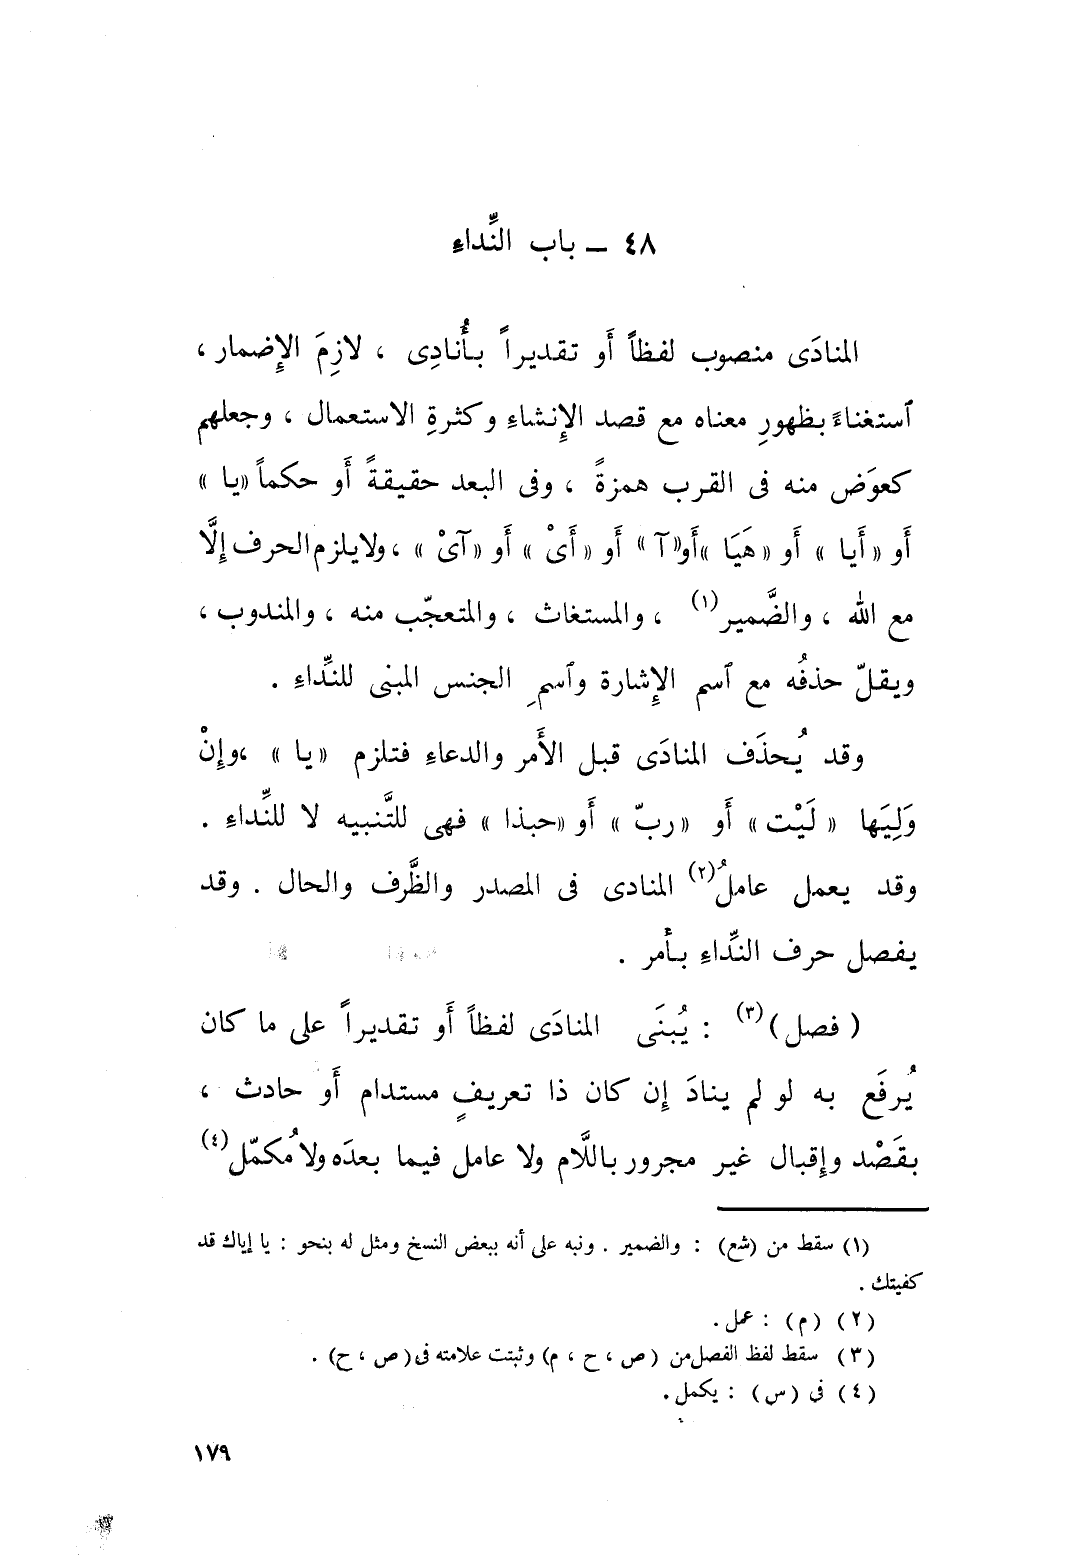 ٤٨ ــ باب النِّداءِ
المنادَى منصوب لفظاً أَو تقديراً بأُنادِى ، لازِمَ الإِضمار ،
ٱستغناءً بظهورِ معناه مع قصد الإِنشاءِ وكثرةِ الاستعمال ، وجعلهم
كعوَض منه فى القرب همزةً ، وفى البعد حقيقةً أَو حكماً «يا »
أَو « أَيا » أَو « هَيَا »أَو«آ» أَو « أَىْ » أَو «آىْ » ، ولا يلزم الحرف إلَّا
مع الله ، والضَّمير(١) ، والمستغاث ، والمتعجّب منه ، والمندوب ،
ويقلّ حذفُه مع ٱسم الإِشارة وٱسمِ الجنس المبنى للنِّداءِ .
وقد يُحذَف المنادَى قبل الأَمر والدعاءِ فتلزم «يا » ،وإِنْ
وَلِيَها « لَيْت» أَو «ربّ » أَو «حبذا » فهى للتَّنبيه لا للنِّداءِ .
وقد يعمل عاملُ(٢) المنادى فى المصدر والظَّرف والحال . وقد
يفصل حرف النِّداءِ بأَمر .
( فصل )(٣) : يُبنَى المنادَى لفظاً أَو تقديراً على ما كان
يُرفَع به لو لم ينادَ إن كان ذا تعريفٍ مستدام أَو حادث ،
بقَصْد وإِقبال غير مجرور باللَّام ولا عامل فيما بعدَه ولا مُكمّل(٤)
(١) سقط من (شع) : والضمير . ونبه على أنه ببعض النسخ ومثل له بنحو : يا إياك قد
كفيتك .
(٢) (م) : عمل .
(٣) سقط لفظ الفصل من (ص ، ح ، م) وثبتت علامته فى (ص ، ح) .
(٤) فى (س) : يكمل .
١٧٩